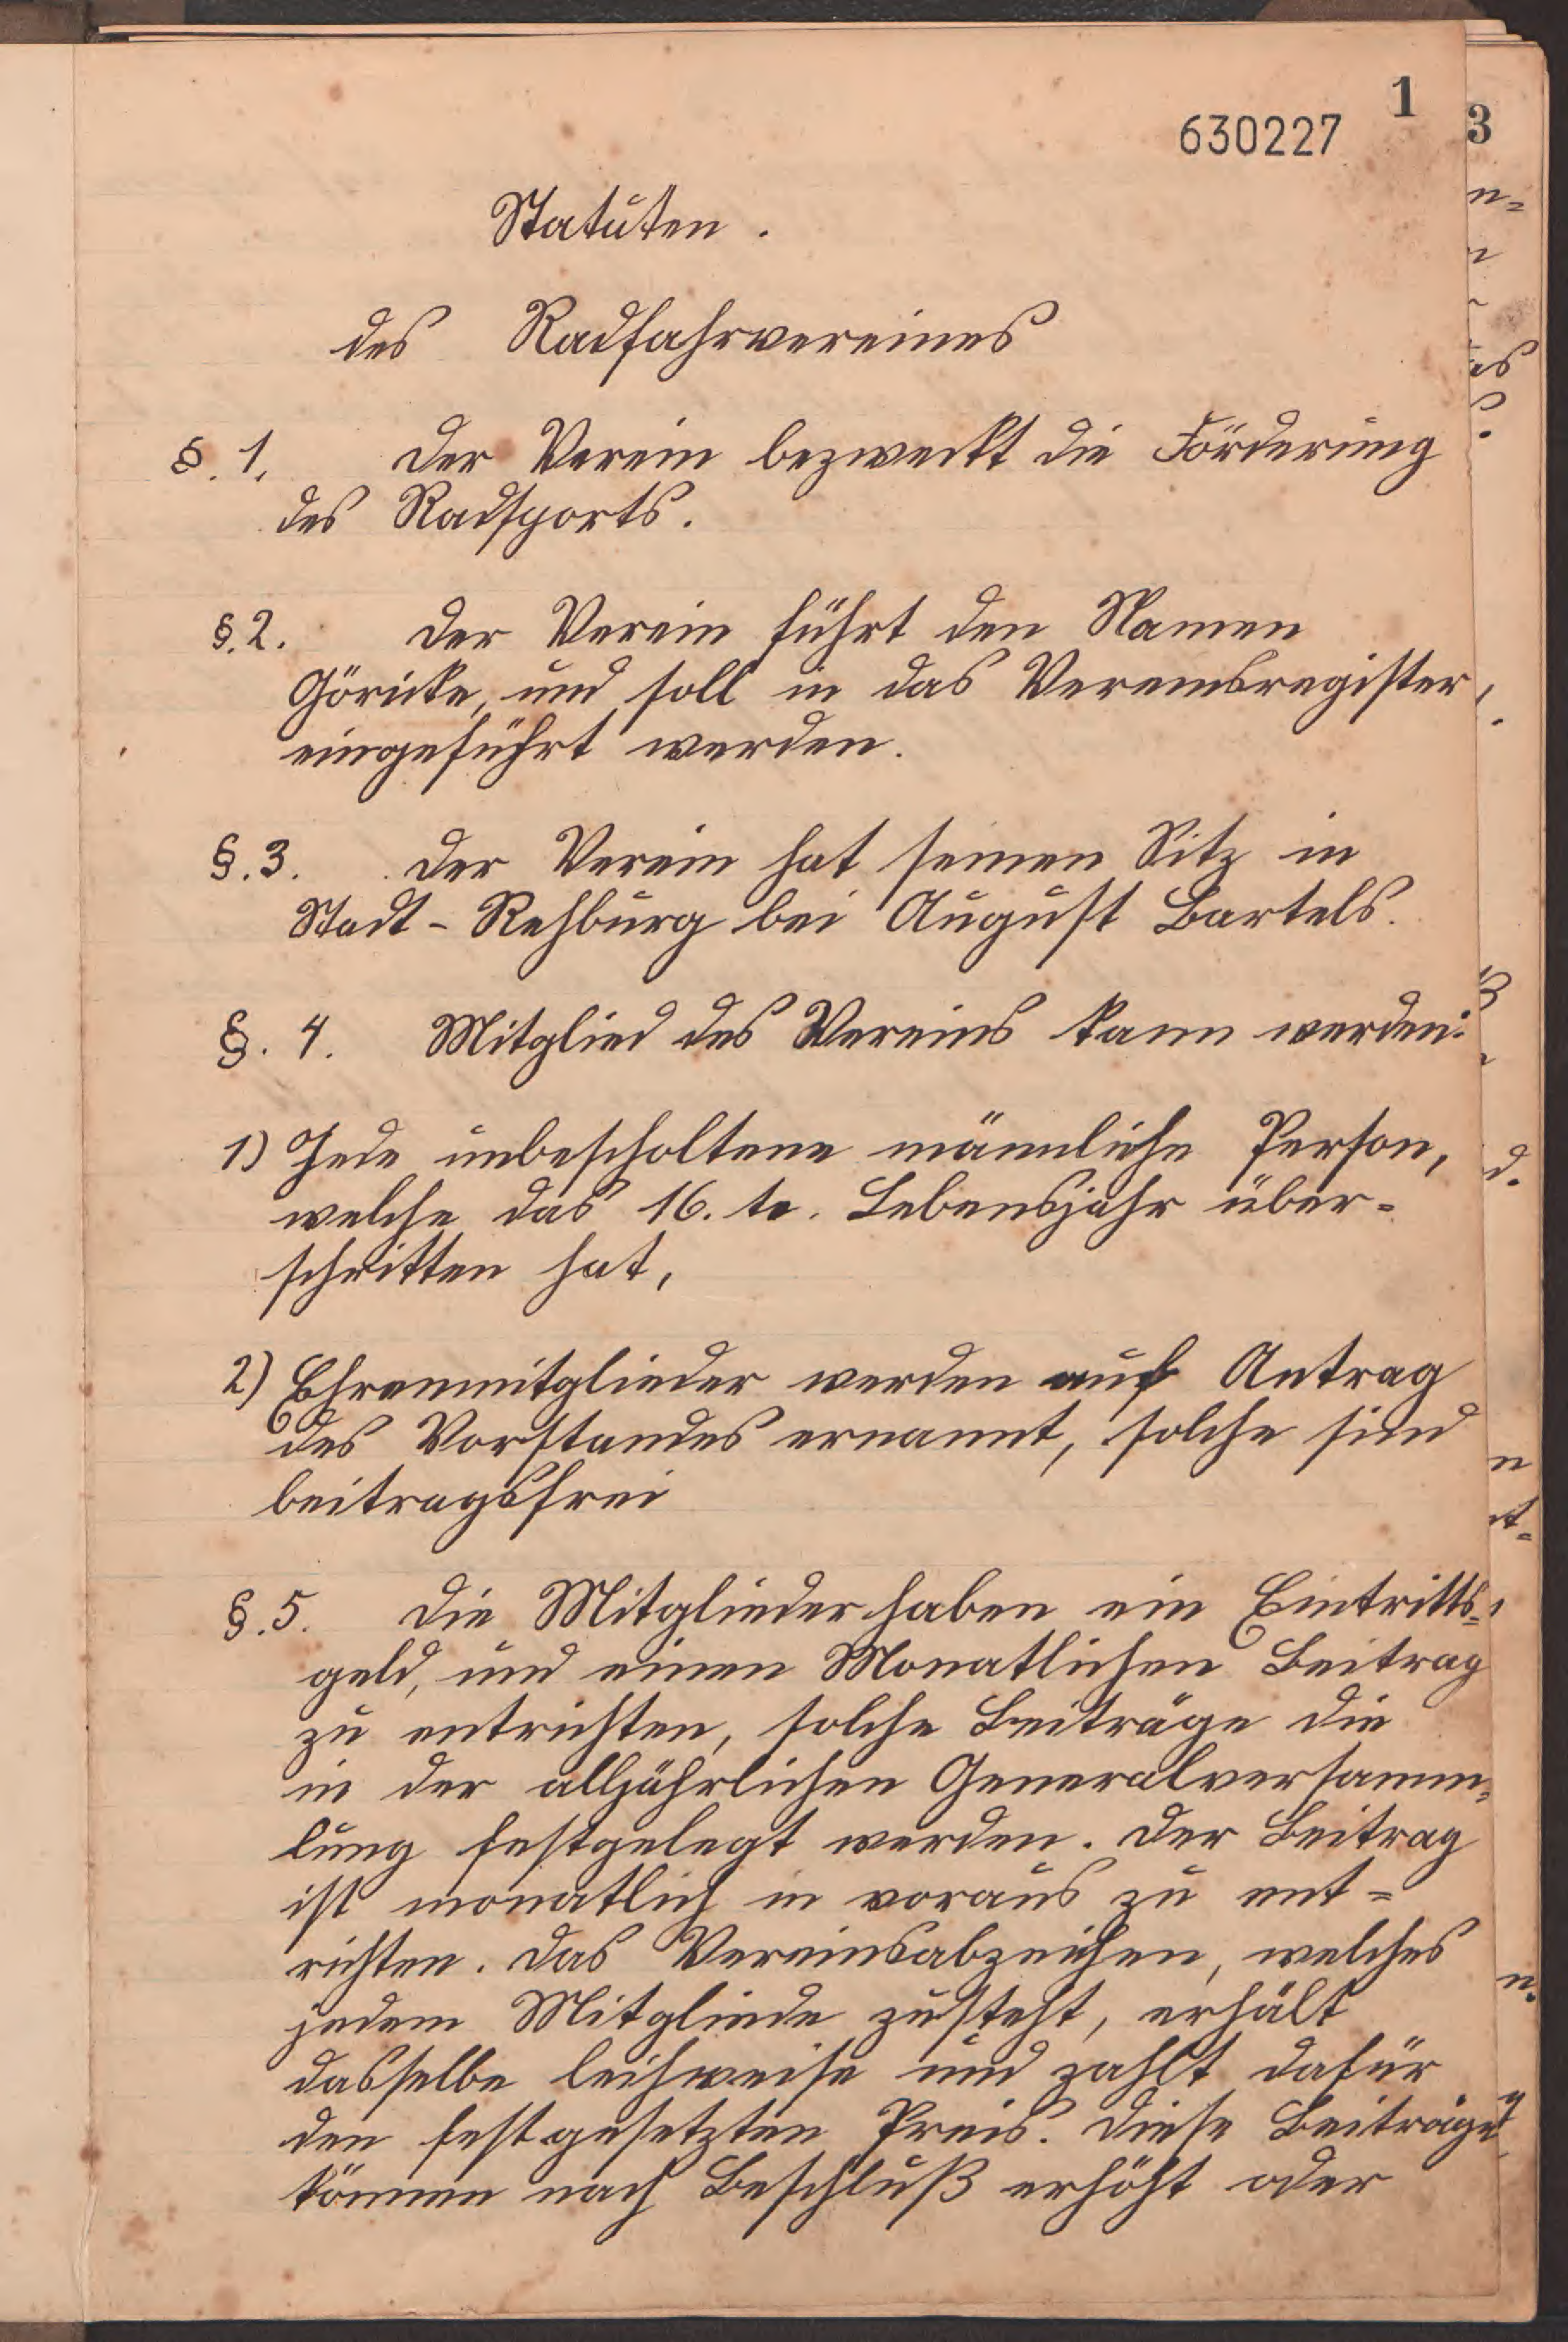 1
630227
Statuten.
des Radfahrvereines
§. 1. Der Verein bezweckt die Förderung
des Radsports.
§. 2. Der Verein führt den Namen
Göricke, und soll in das Vereinsregister
eingeführt werden.
§. 3. Der Verein hat seinen Sitz in
Stadt-Rehburg bei August Bartels.
§. 4. Mitglied des Vereins kann werden:
1) Jede unbescholtene männliche Person,
welche das 16. te. Lebensjahr über-
schritten hat,
2) Ehrenmitglieder werden auf Antrag
des Vorstandes ernannt, solche sind
beitragsfrei
§. 5. Die Mitglieder haben ein Eintritts-
geld, und einen Monatlichen Beitrag
zu entrichten, solche Beiträge die
in der alljährlichen Generalversamm-
lung festgelegt werden. Der Beitrag
ist monatlich in voraus zu ent-
richten. Das Vereinsabzeichen, welches
jedem Mitgliede zusteht, erhält
dasselbe leihweise und zahlt dafür
den festgesetzten Preis. Diese Beiträge
können nach Beschluß erhöht oder
3